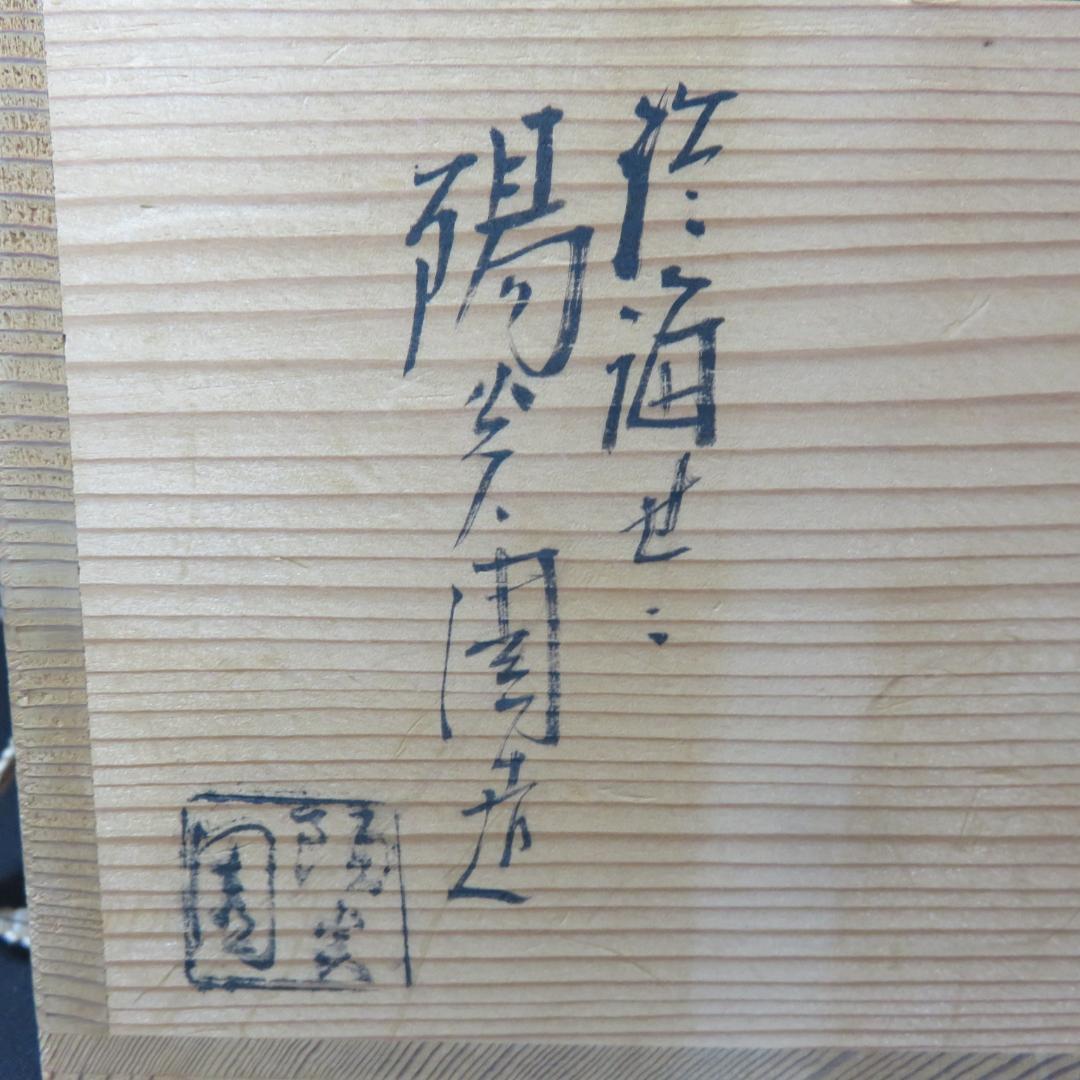 於
陽炎園造
陽炎
園